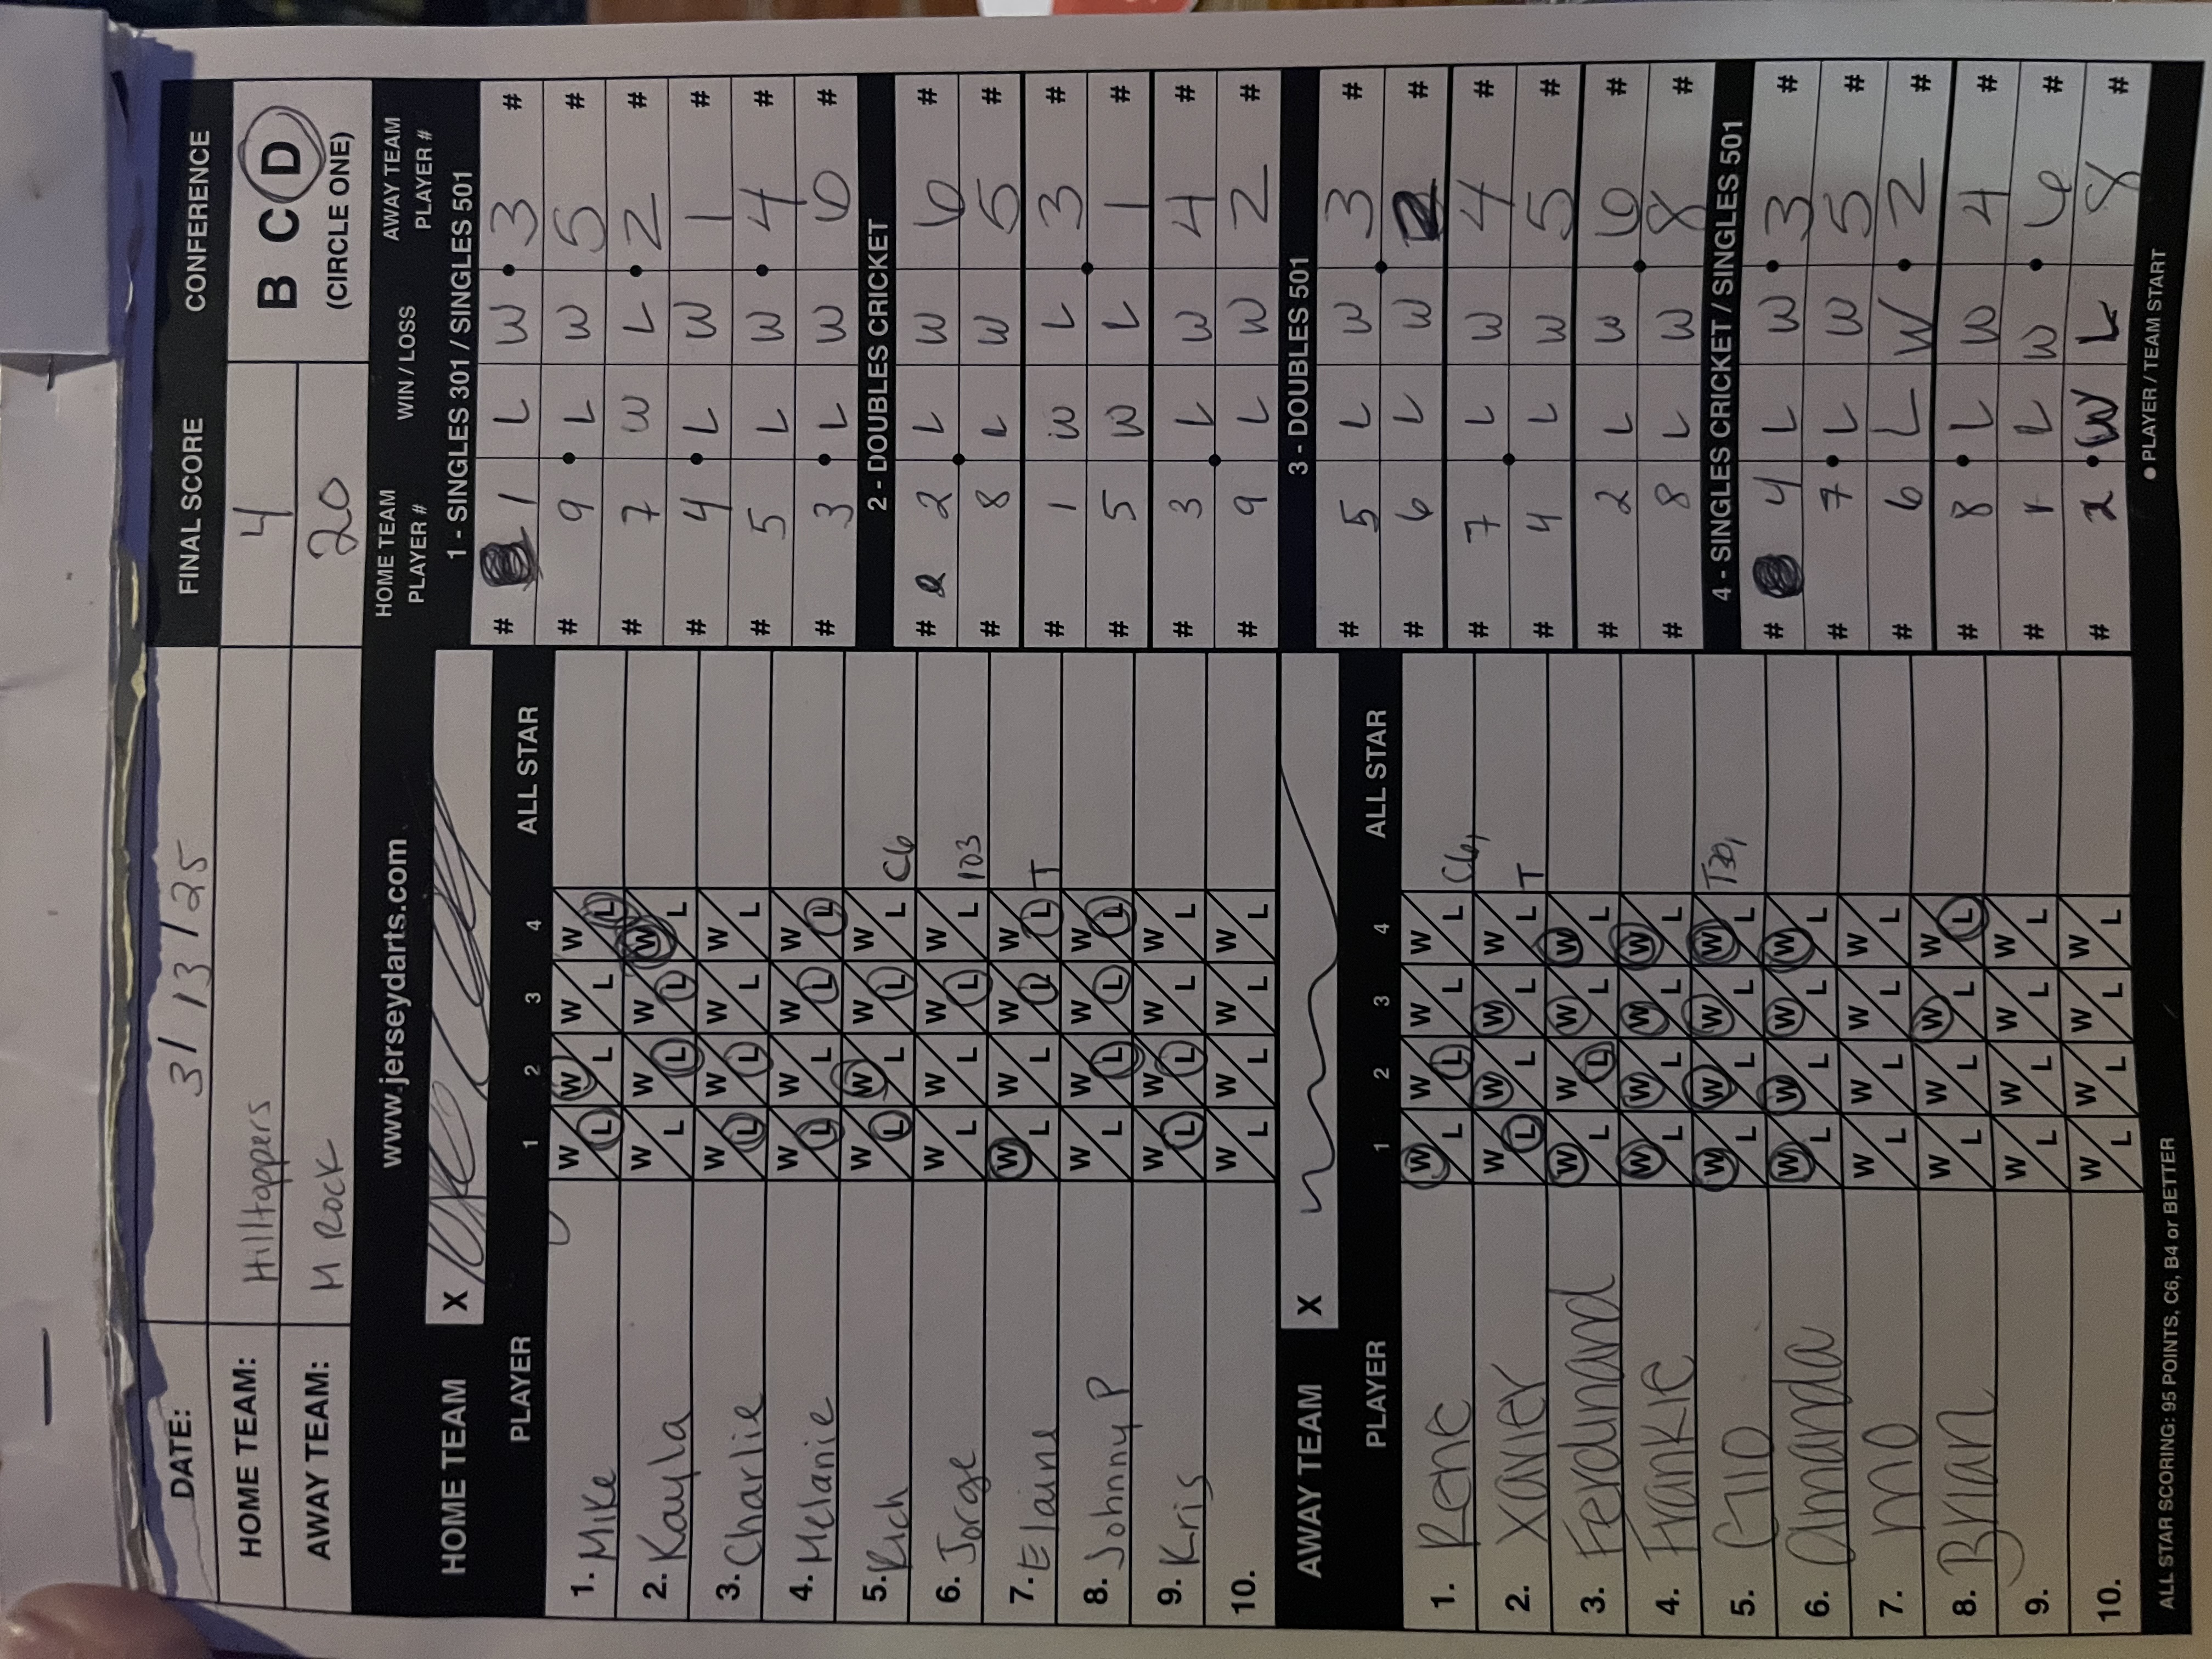 DATE: 3/13/25 FINAL SCORE CONFERENCE
HOME TEAM: Hilltoppers 4 B C D
AWAY TEAM: M Rock 20 (CIRCLE ONE)
www.jerseydarts.com
HOME TEAM X
PLAYER 1 2 3 4 ALL STAR
1. Mike W L W L W L W L
2. Kayla W L W L W L W L
3. Charlie W L W L W L W L
4. Melanie W L W L W L W L
5. Rich W L W L W L W L C6
6. Jorge W L W L W L W L 103
7. Elaine W L W L W L W L T
8. Johnny P W L W L W L W L
9. Kris W L W L W L W L
10. W L W L W L W L
AWAY TEAM X
PLAYER 1 2 3 4 ALL STAR
1. Rene W L W L W L W L C6,
2. Xavier W L W L W L W L T
3. Ferdinand W L W L W L W L
4. Frankie W L W L W L W L
5. Gio W L W L W L W L T30,
6. Amanda W L W L W L W L
7. Mo W L W L W L W L
8. Brian W L W L W L W L
9. W L W L W L W L
10. W L W L W L W L
ALL STAR SCORING: 95 POINTS, C6, B4 or BETTER
HOME TEAM PLAYER # WIN / LOSS AWAY TEAM PLAYER #
1 - SINGLES 301 / SINGLES 501
# 1 L W 3 #
# 9 L W 5 #
# 7 W L 2 #
# 4 L W 1 #
# 5 L W 4 #
# 3 L W 6 #
2 - DOUBLES CRICKET
# 2 L W 6 #
# 8 L W 5 #
# 1 W L 3 #
# 5 W L 1 #
# 3 L W 4 #
# 9 L W 2 #
3 - DOUBLES 501
# 5 L W 3 #
# 6 L W 2 #
# 7 L W 4 #
# 4 L W 5 #
# 2 L W 6 #
# 8 L W 8 #
4 - SINGLES CRICKET / SINGLES 501
# 4 L W 3 #
# 7 L W 5 #
# 6 L W 2 #
# 8 L W 4 #
# 1 L W 6 #
# 2 W L 8 #
● PLAYER / TEAM START